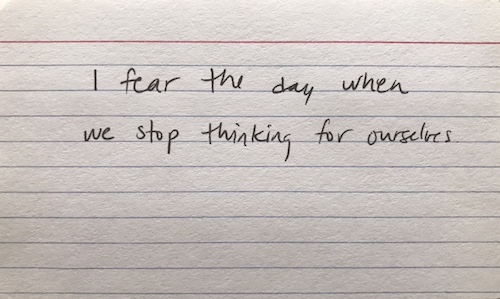 I fear the day when
we stop thinking for ourselves